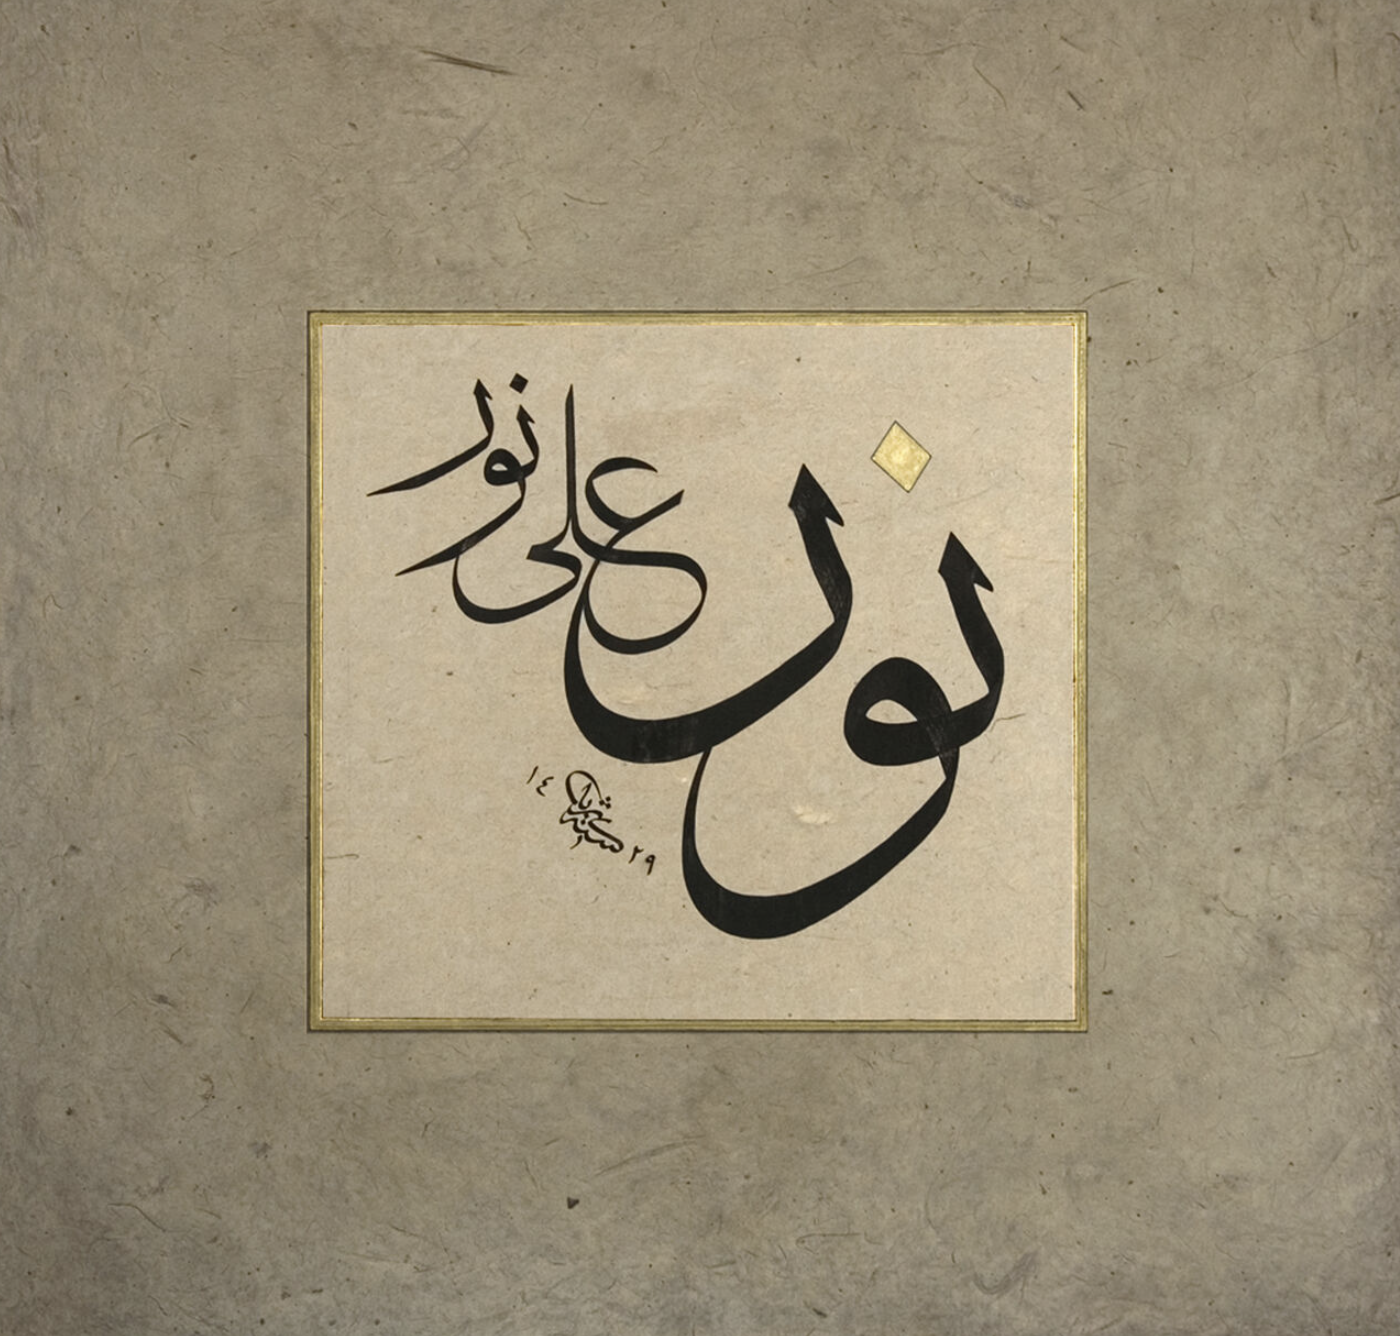 نور على نور
١٤٢٩